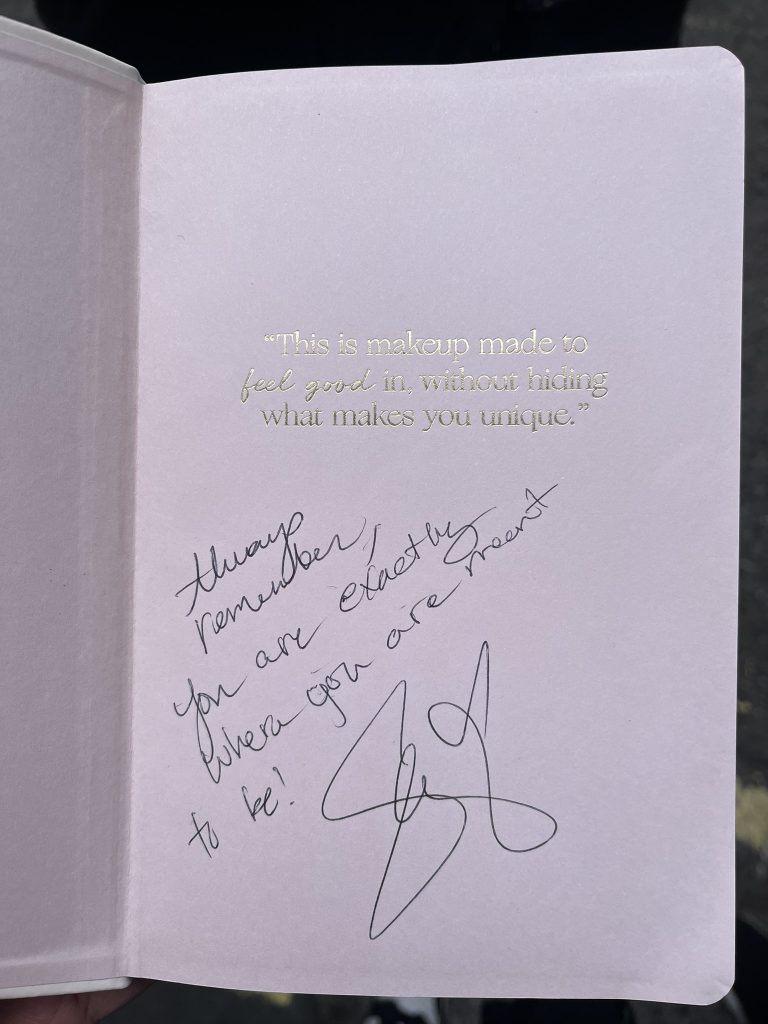 “This is makeup made to
feel good in, without hiding
what makes you unique.”
Always
remember,
you are exactly
where you are meant
to be!